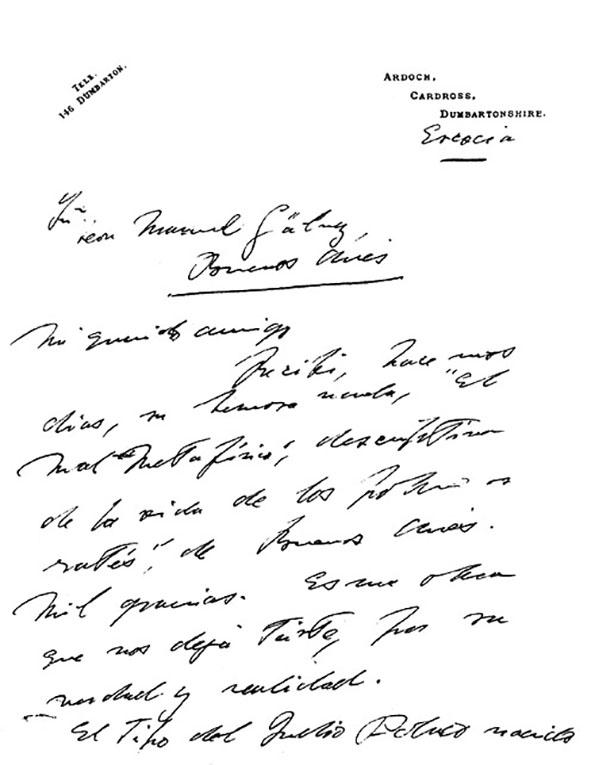 TELE.
146 DUMBARTON.
ARDOCH,
CARDROSS,
DUMBARTONSHIRE.
Escocia
Don Manuel Gálvez,
Buenos Aires
Mi querido amigo
Recibí, hace unos
dias, su novela, "El
mal Metafísico", descriptiva
de la vida de los
"ratés", de Buenos Aires.
Mil gracias. Es una obra
que nos deja triste, por su
verdad y realidad.
El Tipo del Julio nacido